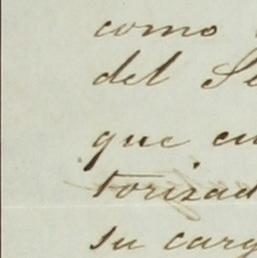 como
del Se
que en
torizad
su carg